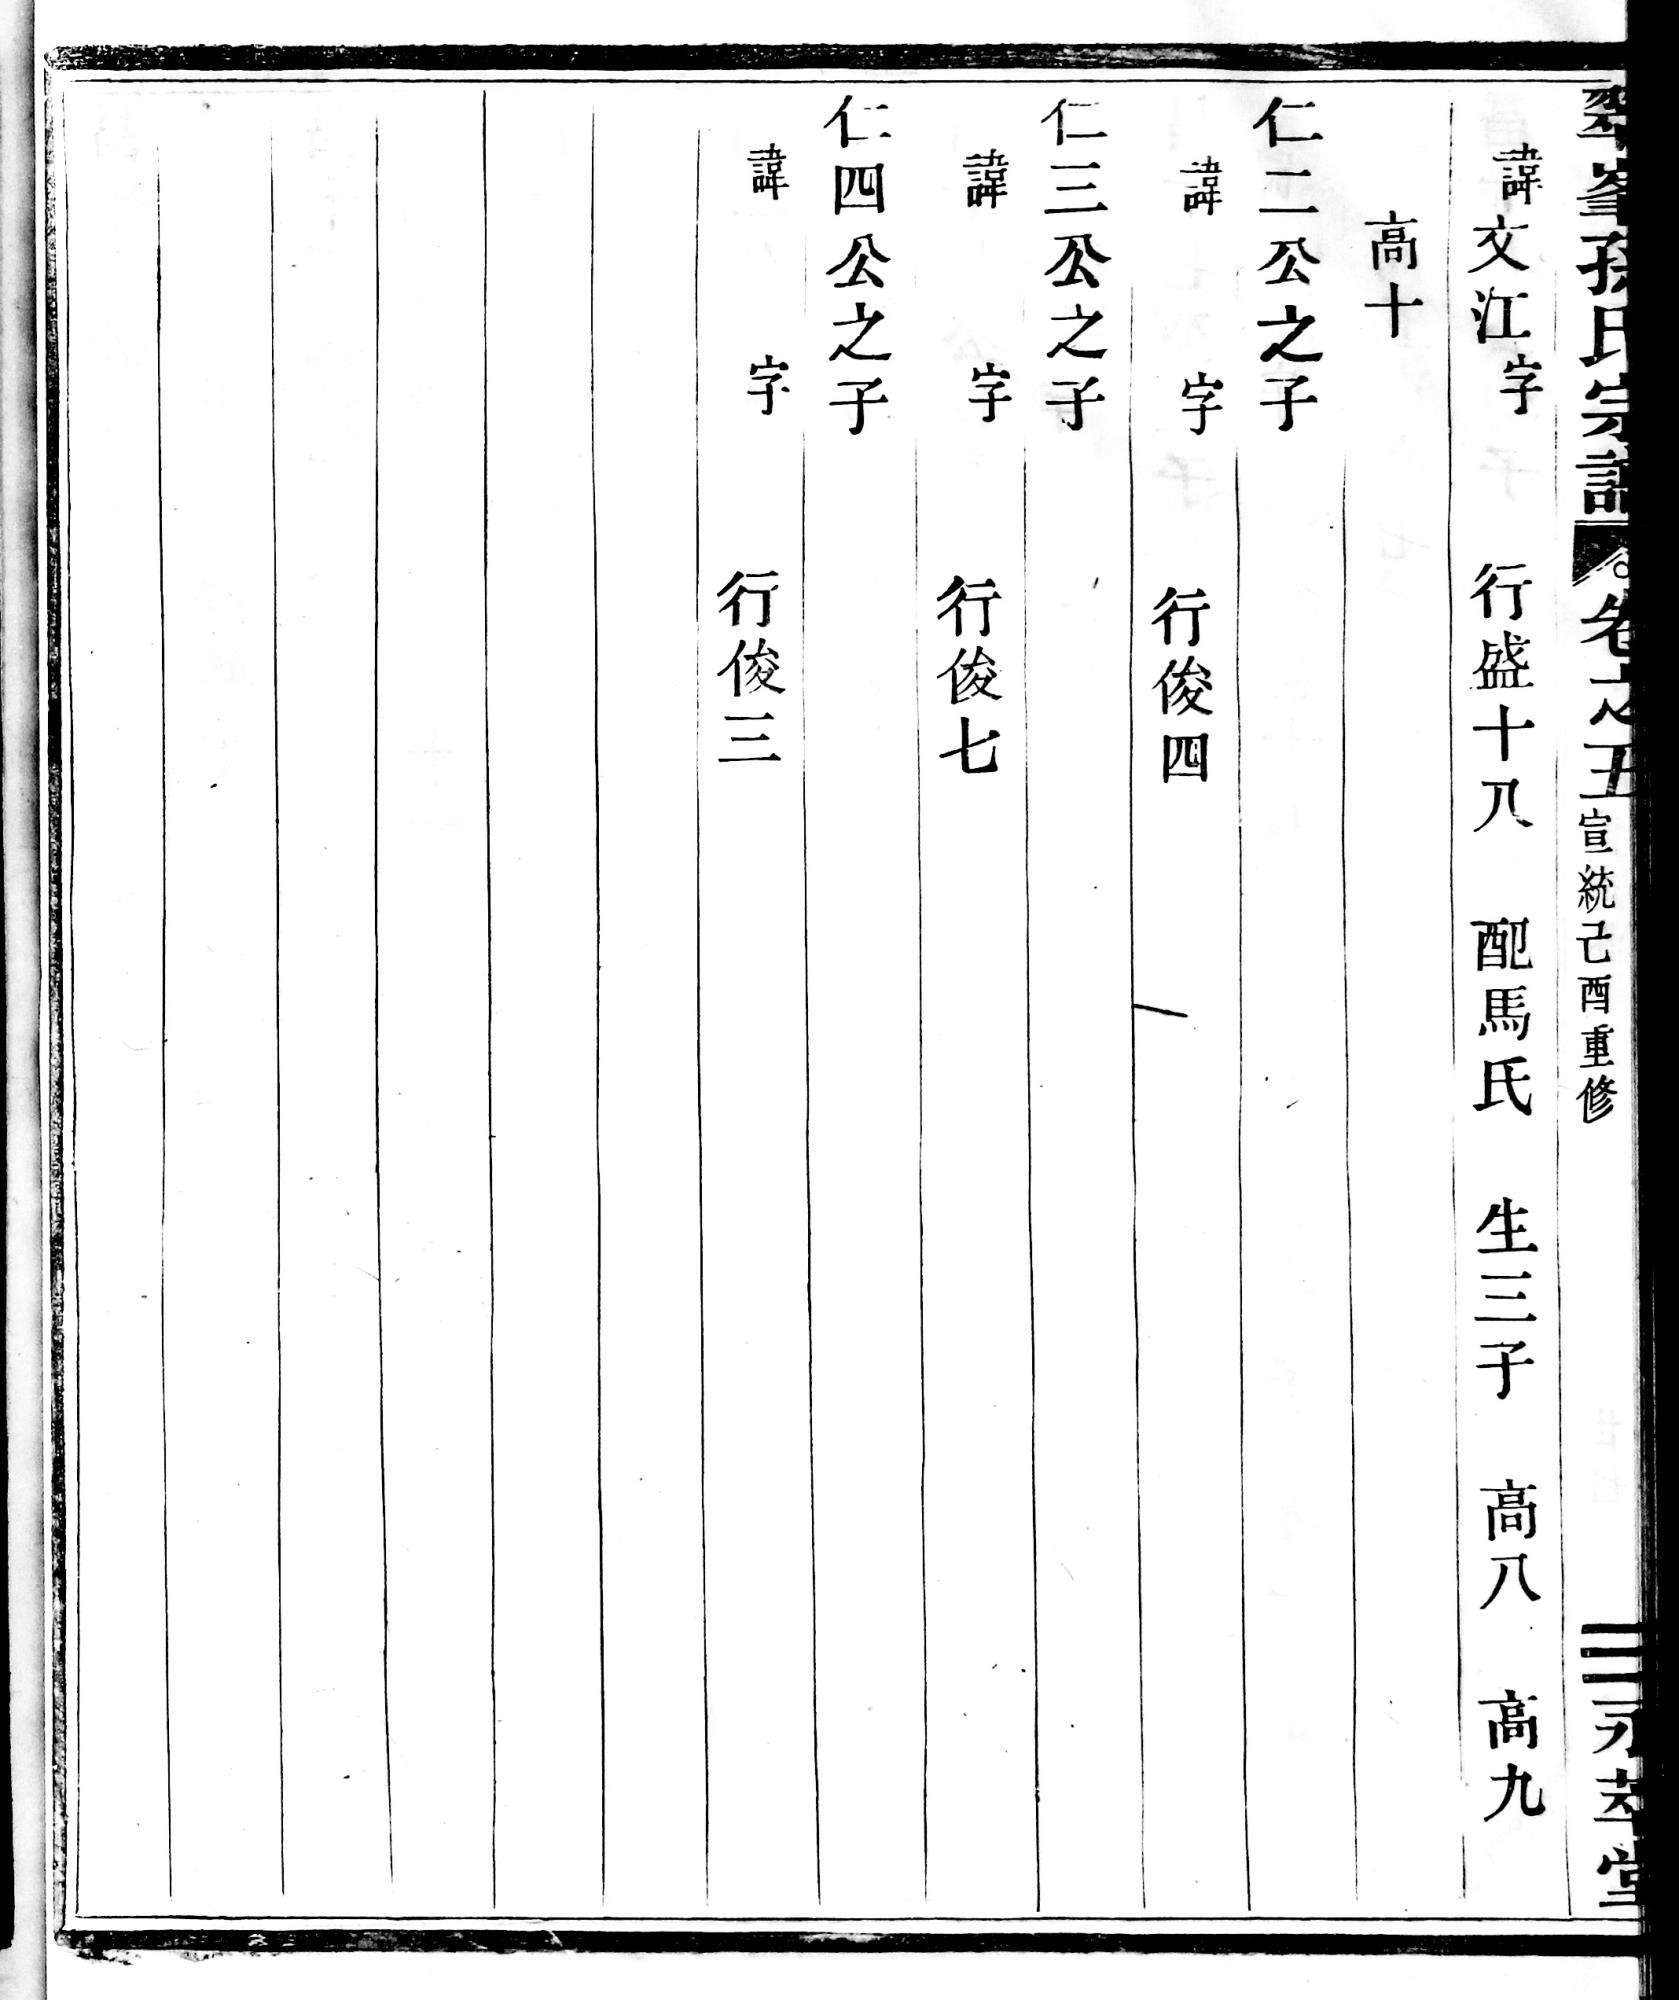 翠峯孫氏宗譜 卷之五 宣統己酉重修 永萃堂
諱文江字 行盛十八 配馬氏 生三子 高八 高九
高十
仁二公之子
諱 字 行俊四
仁三公之子
諱 字 行俊七
仁四公之子
諱 字 行俊三